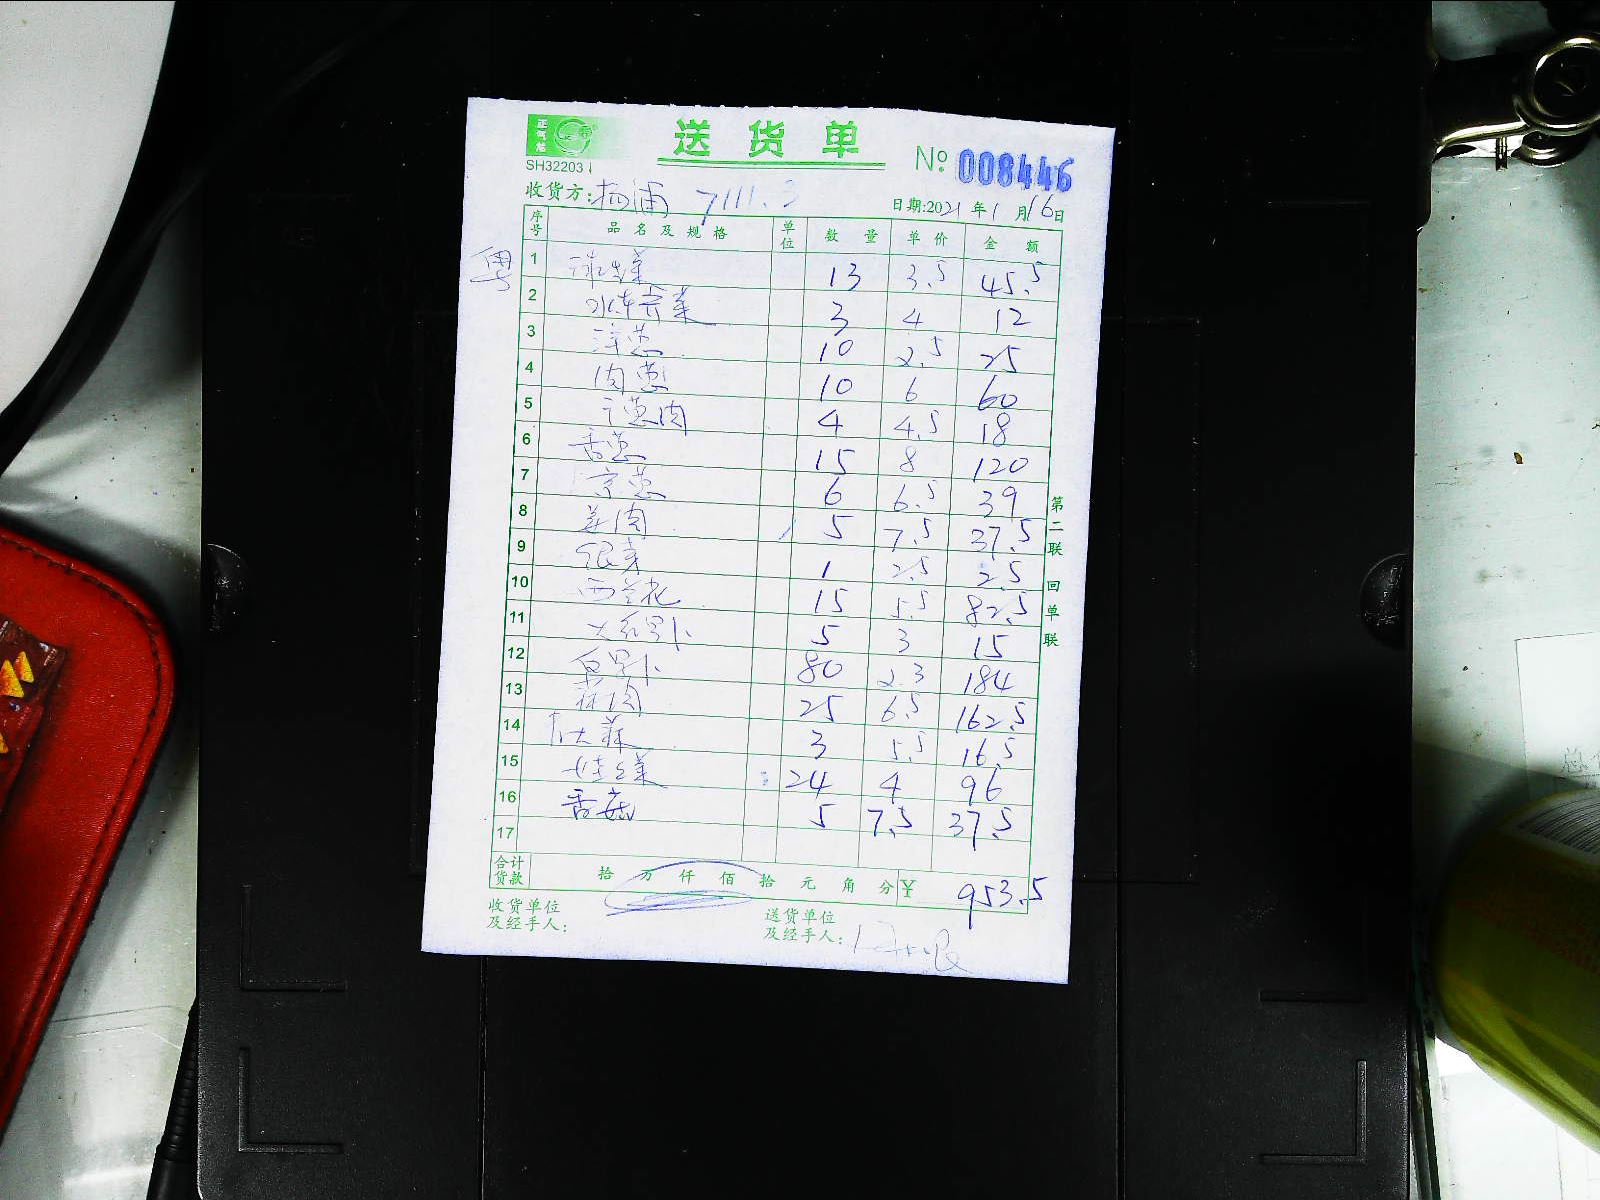 正气龙
送货单
SH32203
No: 008446
收货方:杨浦 7111.2
日期:2021年1月16日
序号 品名及规格 单位 数量 单价 金额
粤
1 球生菜 13 3.5 45.5
2 水芹菜 3 4 12
3 洋葱 10 2.5 25
4 肉葱 10 6 60
5 葱肉 4 4.5 18
6 香葱 15 8 120
7 京葱 6 6.5 39
8 姜肉 5 7.5 37.5
9 银芽 1 2.5 2.5
10 西兰花 15 5.5 82.5
11 大红罗卜 5 3 15
12 白罗卜 80 2.3 184
13 蒜肉 25 6.5 162.5
14 3 5.5 16.5
15 娃娃菜 24 4 96
16 香菇 5 7.5 37.5
17
合计货款 拾万仟佰拾元角分 ¥ 953.5
收货单位及经手人:
送货单位及经手人:
第二联 回单联